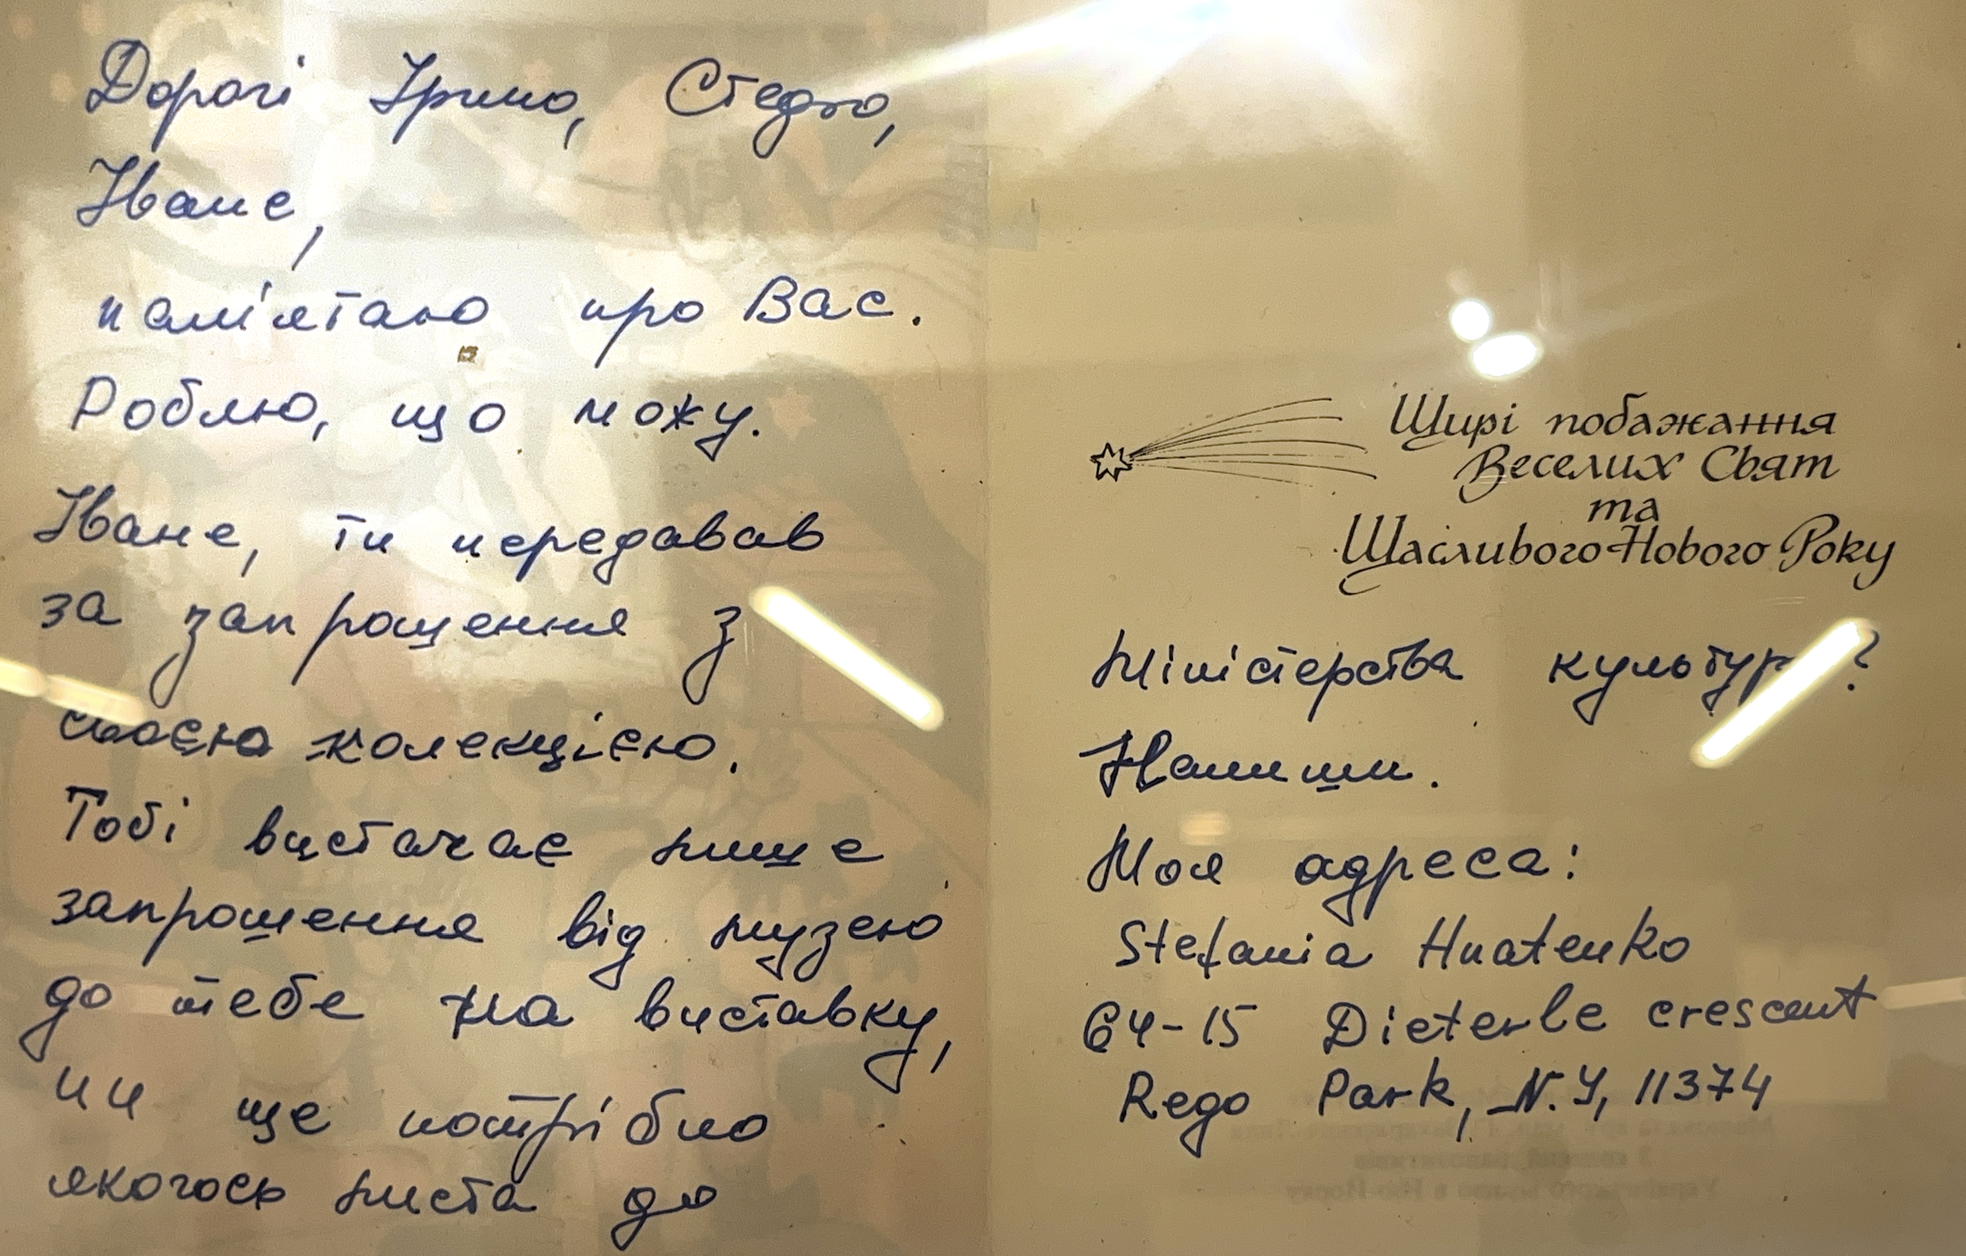 Дорогі Ірино, Стедю,
Іване,
пам'ятаю про Вас.
Роблю, що можу.
Іване, ти передавав
за запрошення з
своєю колекцією.
Тобі вистачає лише
запрошення від музею
до тебе на виставку,
чи ще потрібно
якогось листа до
Щирі побажання
Веселих Свят
та
Щасливого Нового Року
Міністерства культури?
Напиши.
Моя адреса:
Stefania Hnatenko
64-15 Dieterle crescent
Rego Park, N.Y, 11374